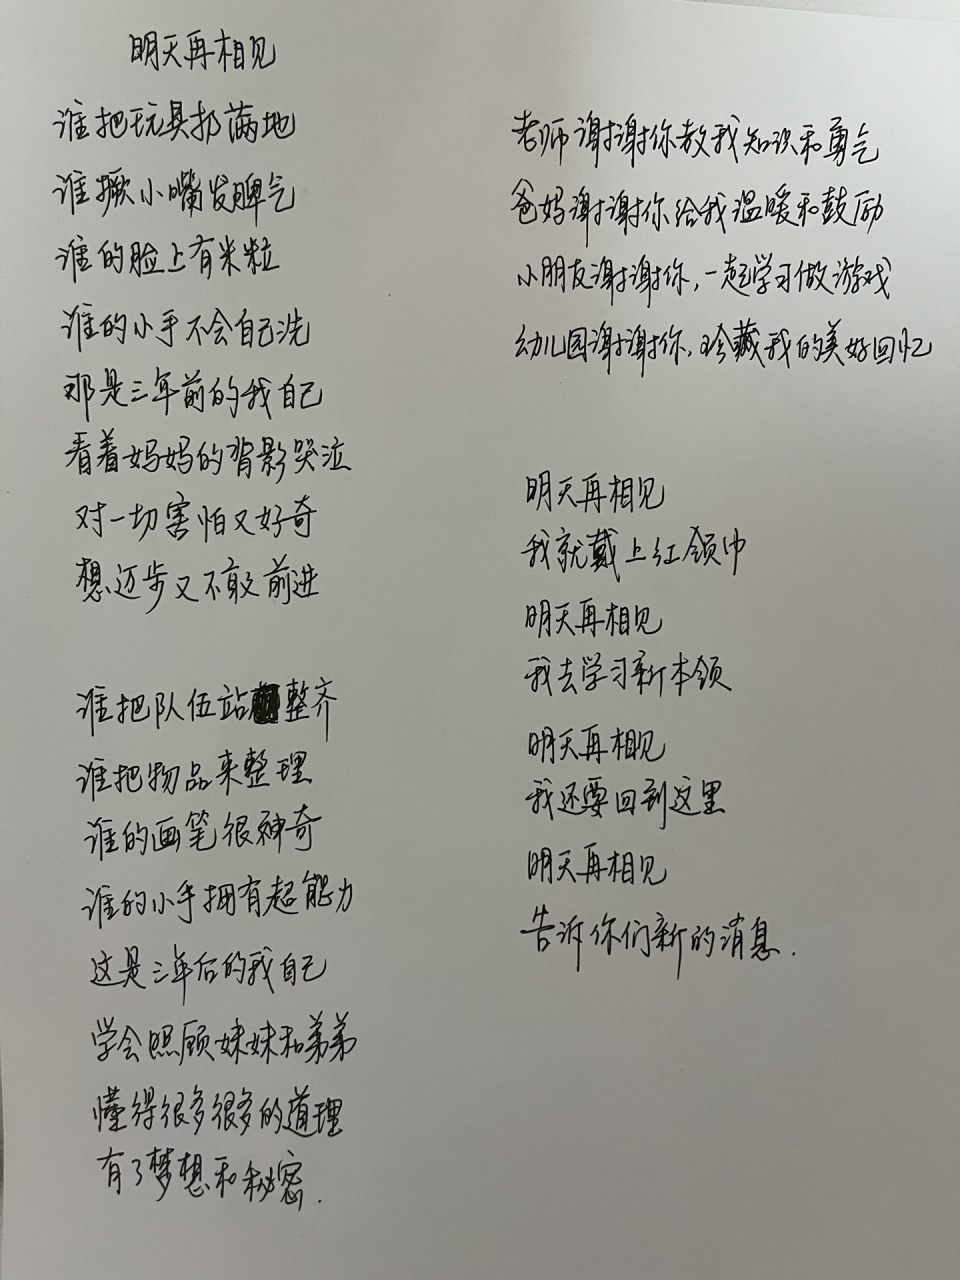 明天再相见
谁把玩具扔满地
谁撅小嘴发脾气
谁的脸上有米粒
谁的小手不会自己洗
那是三年前的我自己
看着妈妈的背影哭泣
对一切害怕又好奇
想迈步又不敢前进
谁把队伍站整齐
谁把物品来整理
谁的画笔很神奇
谁的小手拥有超能力
这是三年后的我自己
学会照顾妹妹和弟弟
懂得很多很多的道理
有了梦想和秘密.
老师谢谢你教我知识和勇气
爸妈谢谢你给我温暖和鼓励
小朋友谢谢你,一起学习做游戏
幼儿园谢谢你,珍藏我的美好回忆
明天再相见
我就戴上红领巾
明天再相见
我去学习新本领
明天再相见
我还要回到这里
明天再相见
告诉你们新的消息.